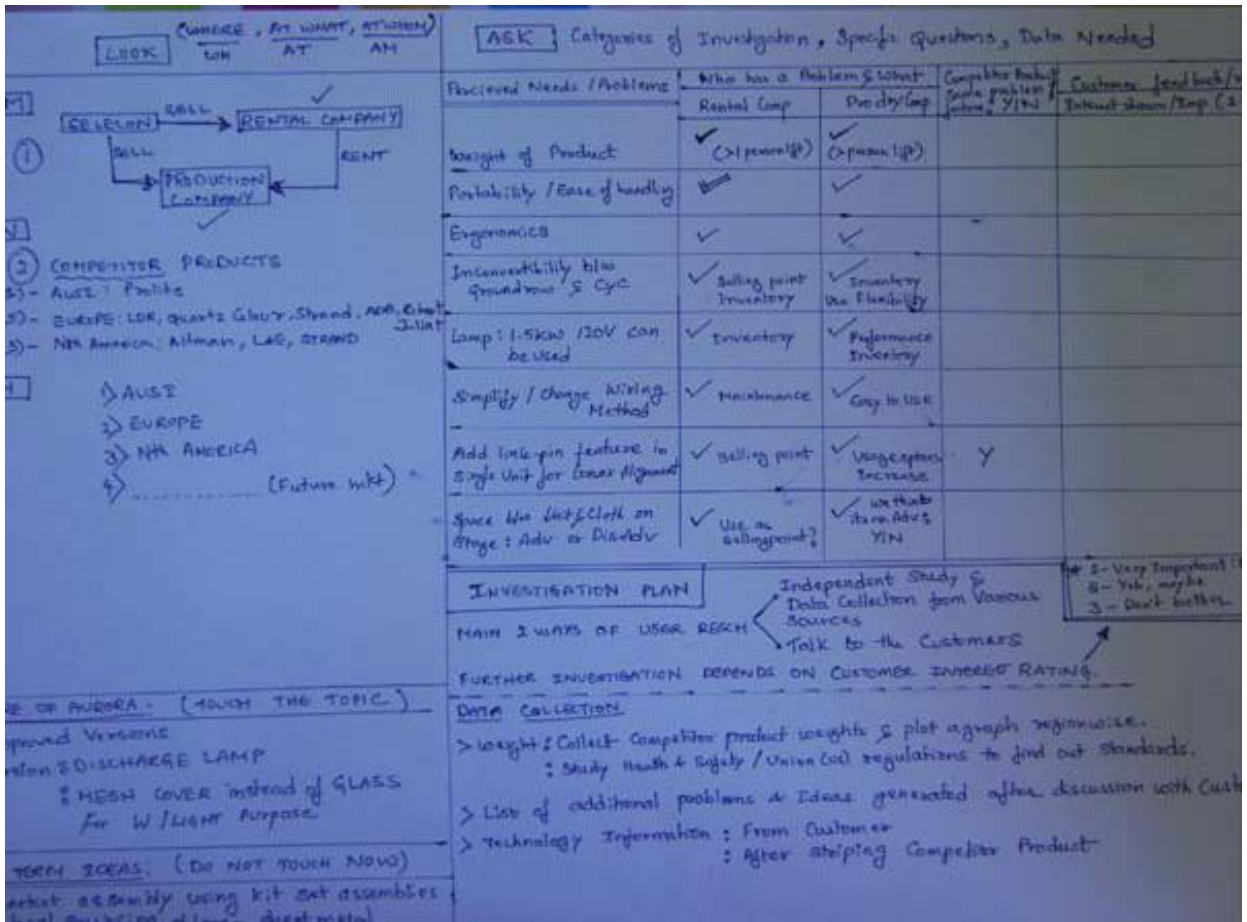 LOOK (WHERE, AT WHAT, AT WHOM)
AT AM
M
1
SELECON SELL RENTAL COMPANY
SELL RENT
PRODUCTION COMPANY
2 COMPETITOR PRODUCTS
- AUSZ: Prolite
- EUROPE: LDR, Quartz Strand, ADB, Robert Juliat
- Nth America: Altman, L&E, STRAND
1) AUSZ
2) EUROPE
3) Nth AMERICA
4) ............ (Future mkt)
OF AURORA. (TOUCH THE TOPIC)
Versions
: DISCHARGE LAMP
: MESH COVER instead of GLASS
For W/LIGHT Purpose
TERM IDEAS: (DO NOT TOUCH NOW)
assembly using kit set assemblies
ASK Categories of Investigation, Specific Questions, Data Needed
Percieved Needs / Problems
Who has a Problem & What
Rental Comp
Customer feedback/
Interest shown/Imp
Y/N
Weight of Product
(>1 person lift)
(>person lift)
Portability / Ease of handling
Ergonomics
Inconvertibility b/w Groundrow & Cyc
Selling point Inventory
Inventory Use Flexibility
Lamp: 1.5kw 120V can be used
Inventory
Performance Inventory
Simplify / Change Wiring Method
Maintenance
Easy to Use
Add link-pin feature in Single Unit for Alignment
Selling point
Usage options Increase
Y
Space b/w & Cloth on Stage: Adv or DisAdv
Use as Sellingpoint?
we think its an Adv: Y/N
INVESTIGATION PLAN
MAIN 2 WAYS OF USER RESCH
Independent Study & Data Collection from Various Sources
Talk to the Customers
- Very Important
- Yah, maybe
3 - Don't bother
FURTHER INVESTIGATION DEPENDS ON CUSTOMER INTEREST RATING.
DATA COLLECTION
> Weight: Collect Competitor product weights & plot a graph regionwise.
: Study Health & Safety / Union regulations to find out Standards.
> List of additional problems & Ideas generated after discussion with
> Technology Information : From Customer
: After Striping Competitor Product